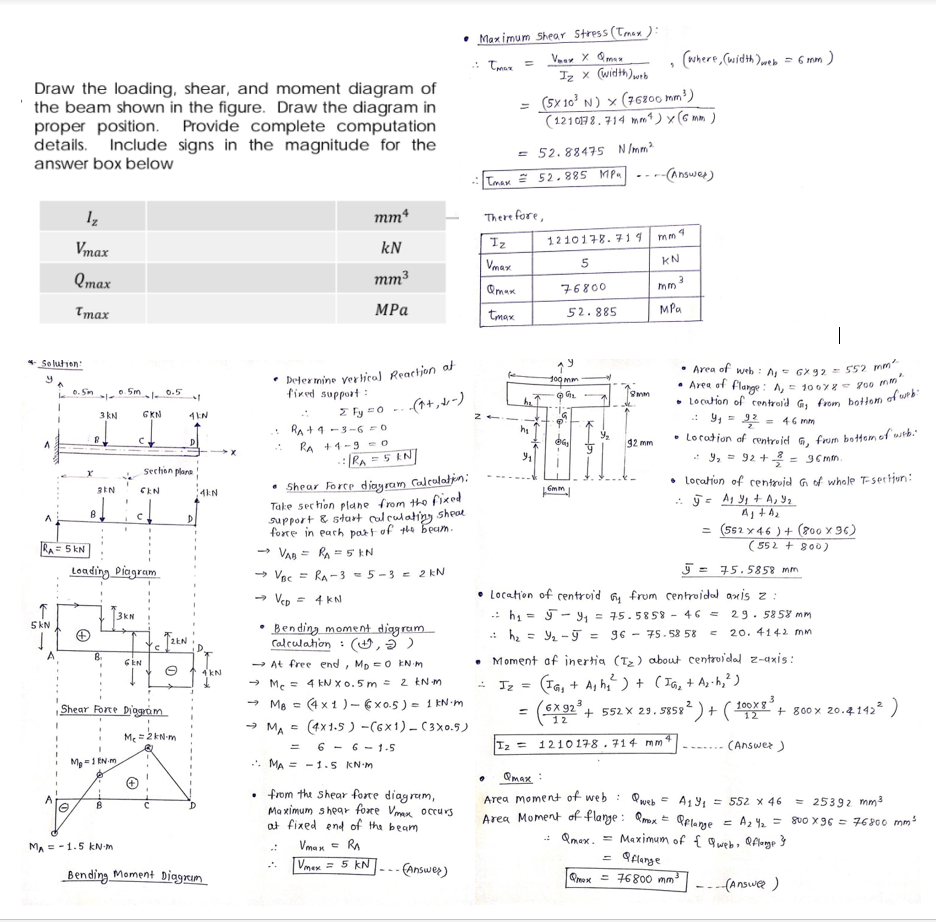 Draw the loading, shear, and moment diagram of
the beam shown in the figure. Draw the diagram in
proper position. Provide complete computation
details. Include signs in the magnitude for the
answer box below
I_z mm⁴
V_max kN
Q_max mm³
τ_max MPa
• Maximum Shear Stress (τmax) :
∴ τmax = Vmax X Qmax / Iz x (width)web , (where, (width)web = 6 mm )
= (5x10³ N) x (76800 mm³) / (1210178.714 mm⁴) x (6 mm )
= 52.88475 N/mm²
∴ τmax ≅ 52.885 MPa ----(Answer)
Therefore,
Iz 1210178.714 mm⁴
Vmax 5 KN
Qmax 76800 mm³
τmax 52.885 MPa
* Solution:
y
0.5m 0.5m 0.5
3KN 6KN 4KN
A B C D x
x Section plane
3KN 6KN 4KN
A B C D
RA = 5 KN
Loading Diagram
5 KN 3KN
+ C 2KN D
A B 6KN - 4KN
Shear Force Diagram
Mc = 2 kN·m
MB = 1 KN·m
+
A - B C D
MA = -1.5 KN·m
Bending Moment Diagram
• Determine vertical Reaction at
fixed support :
∴ Σ Fy = 0 --- (↑+, ↓-)
∴ RA + 4 - 3 - 6 = 0
∴ RA + 4 - 9 = 0
∴ RA = 5 KN
• Shear Force diagram Calculation:
Take section plane from the fixed
support & start calculating shear
force in each part of the beam.
→ VAB = RA = 5 KN
→ VBC = RA - 3 = 5 - 3 = 2 KN
→ VCD = 4 KN
• Bending moment diagram
Calculation :
→ At free end , MD = 0 KN·m
→ Mc = 4 KN x 0.5 m = 2 KN·m
→ MB = (4 x 1 ) - (6 x 0.5 ) = 1 KN·m
→ MA = (4x1.5 ) - (6x1) - (3x0.5)
= 6 - 6 - 1.5
∴ MA = - 1.5 KN·m
• from the shear force diagram,
Maximum shear force Vmax occurs
at fixed end of the beam
∴ Vmax = RA
∴ Vmax = 5 KN ---(Answer)
y
100 mm
h2 G2 8mm
z G
h1 G1 y2 ȳ 92 mm
y1
6mm
• Area of web : A1 = 6x92 = 552 mm²
• Area of flange : A2 = 100x8 = 800 mm²
• Location of centroid G1 from bottom of web:
∴ y1 = 92/2 = 46 mm
• Location of centroid G2 from bottom of web:
∴ y2 = 92 + 8/2 = 96mm.
• Location of centroid G of whole T-section:
∴ ȳ = A1 y1 + A2 y2 / A1 + A2
= (552 x 46 ) + (800 x 96) / (552 + 800)
ȳ = 75.5858 mm
• Location of centroid G from centroidal axis z :
∴ h1 = ȳ - y1 = 75.5858 - 46 = 29.5858 mm
∴ h2 = y2 - ȳ = 96 - 75.5858 = 20.4142 mm
• Moment of inertia (Iz) about centroidal z-axis:
∴ Iz = (IG1 + A1 h1²) + (IG2 + A2·h2²)
= (6x92³/12 + 552 x 29.5858²) + (100x8³/12 + 800 x 20.4142²)
Iz = 1210178.714 mm⁴ ------ (Answer)
• Qmax :
Area moment of web : Qweb = A1 y1 = 552 x 46 = 25392 mm³
Area Moment of flange : Qmax = Qflange = A2 y2 = 800 x 96 = 76800 mm³
∴ Qmax. = Maximum of { Qweb, Qflange }
= Qflange
Qmax = 76800 mm³ ----(Answer )